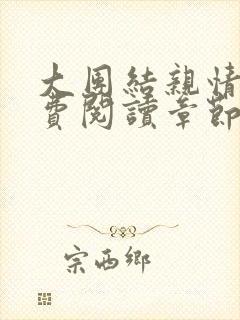 大團結親情
費閱讀章節
宗西鄉